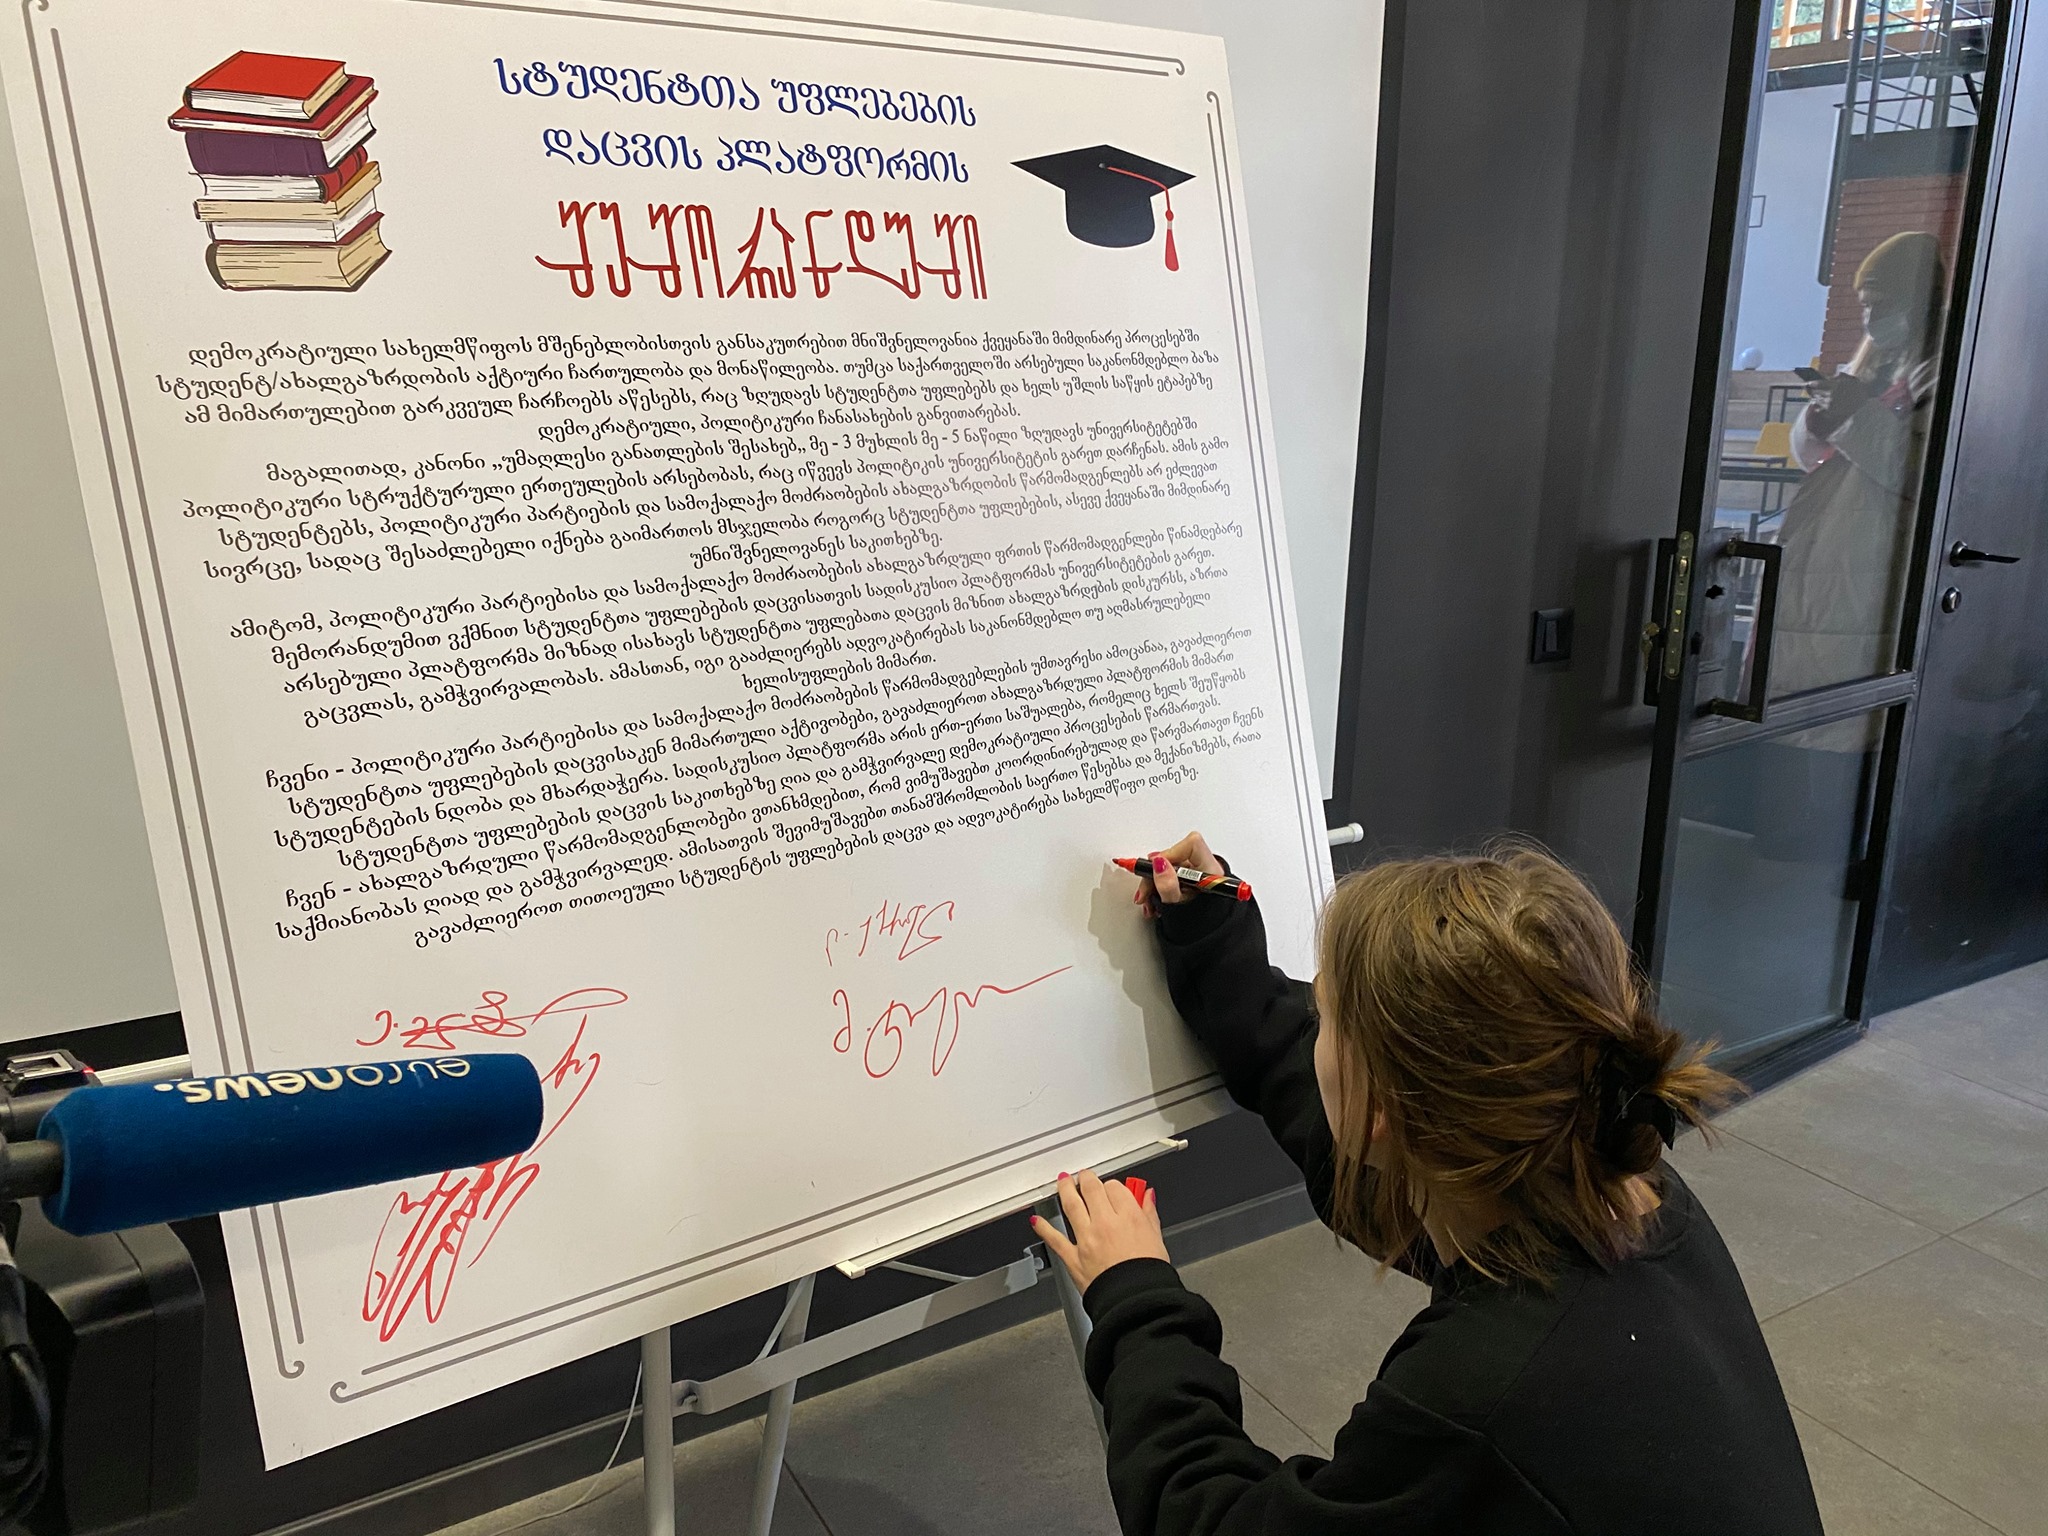 სტუდენტთა უფლებების
დაცვის პლატფორმის
მემორანდუმი
დემოკრატიული სახელმწიფოს მშენებლობისთვის განსაკუთრებით მნიშვნელოვანია ქვეყანაში მიმდინარე პროცესებში
სტუდენტ/ახალგაზრდობის აქტიური ჩართულობა და მონაწილეობა. თუმცა საქართველოში არსებული საკანონმდებლო ბაზა
ამ მიმართულებით გარკვეულ ჩარჩოებს აწესებს, რაც ზღუდავს სტუდენტთა უფლებებს და ხელს უშლის საწყის ეტაპებზე
დემოკრატიული, პოლიტიკური ჩანასახების განვითარებას.
მაგალითად, კანონი „უმაღლესი განათლების შესახებ„ მე - 3 მუხლის მე - 5 ნაწილი ზღუდავს უნივერსიტეტებში
პოლიტიკური სტრუქტურული ერთეულების არსებობას, რაც იწვევს პოლიტიკის უნივერსიტეტის გარეთ დარჩენას. ამის გამო
სტუდენტებს, პოლიტიკური პარტიების და სამოქალაქო მოძრაობების ახალგაზრდობის წარმომადგენლებს არ ეძლევათ
სივრცე, სადაც შესაძლებელი იქნება გაიმართოს მსჯელობა როგორც სტუდენტთა უფლებების, ასევე ქვეყანაში მიმდინარე
უმნიშვნელოვანეს საკითხებზე.
ამიტომ, პოლიტიკური პარტიებისა და სამოქალაქო მოძრაობების ახალგაზრდული ფრთის წარმომადგენლები წინამდებარე
მემორანდუმით ვქმნით სტუდენტთა უფლებების დაცვისათვის სადისკუსიო პლატფორმას უნივერსიტეტების გარეთ.
არსებული პლატფორმა მიზნად ისახავს სტუდენტთა უფლებათა დაცვის მიზნით ახალგაზრდების დისკურსს, აზრთა
გაცვლას, გამჭვირვალობას. ამასთან, იგი გააძლიერებს ადვოკატირებას საკანონმდებლო თუ აღმასრულებელი
ხელისუფლების მიმართ.
ჩვენი - პოლიტიკური პარტიებისა და სამოქალაქო მოძრაობების წარმომადგებლების უმთავრესი ამოცანაა, გავაძლიეროთ
სტუდენტთა უფლებების დაცვისაკენ მიმართული აქტივობები, გავაძლიეროთ ახალგაზრდული პლატფორმის მიმართ
სტუდენტების ნდობა და მხარდაჭერა. სადისკუსიო პლატფორმა არის ერთ-ერთი საშუალება, რომელიც ხელს შეუწყობს
სტუდენტთა უფლებების დაცვის საკითხებზე ღია და გამჭვირვალე დემოკრატიული პროცესების წარმართვას.
ჩვენ - ახალგაზრდული წარმომადგენლობები ვთანხმდებით, რომ ვიმუშავებთ კოორდინირებულად და წარვმართავთ ჩვენს
საქმიანობას ღიად და გამჭვირვალედ. ამისათვის შევიმუშავებთ თანამშრომლობის საერთო წესებსა და მექანიზმებს, რათა
გავაძლიეროთ თითოეული სტუდენტის უფლებების დაცვა და ადვოკატირება სახელმწიფო დონეზე.
euronews.